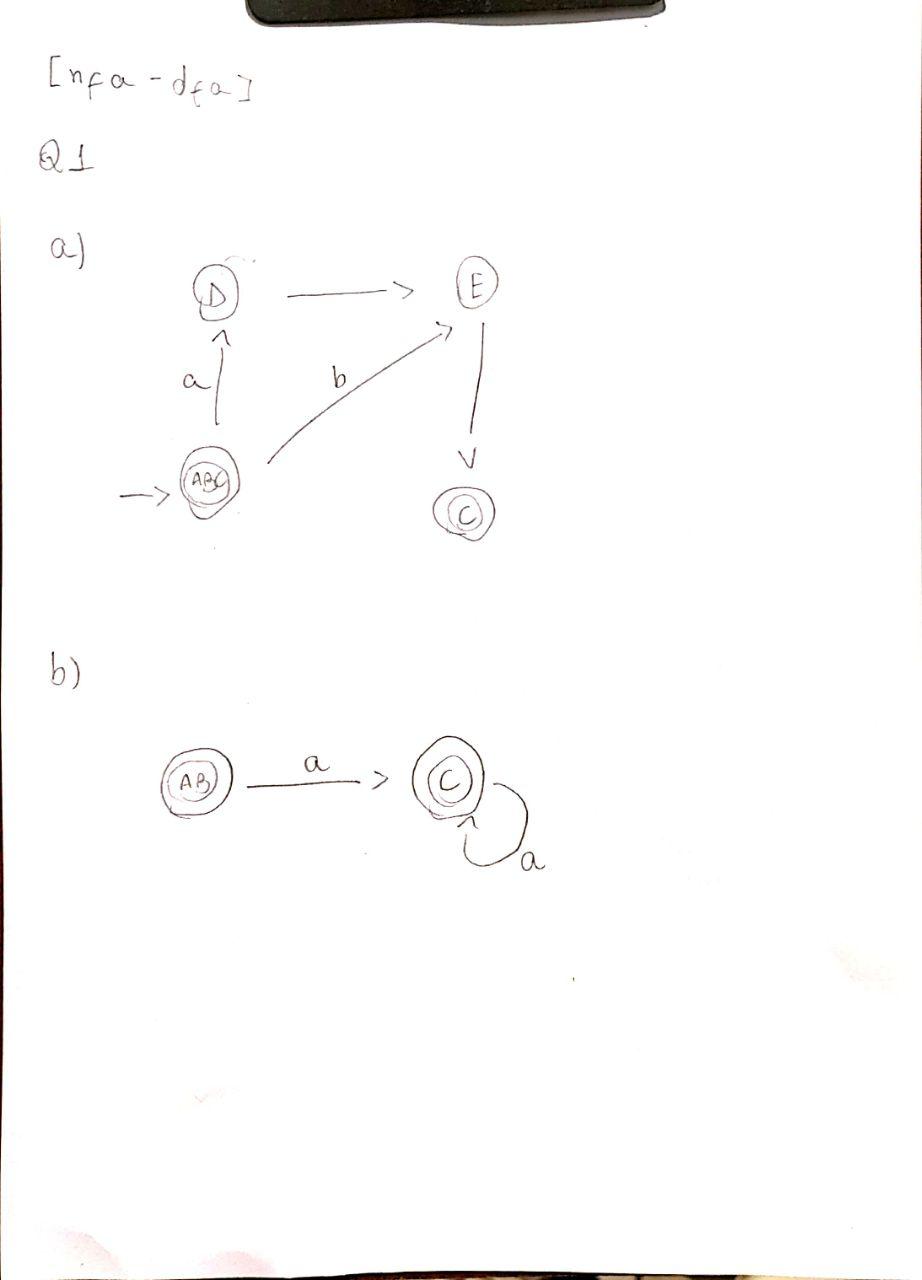 [nfa - dfa]
Q1
a)
D E
a b
ABC
C
b)
AB a C
a